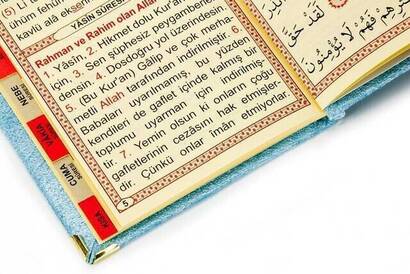 (5) Lİ
kavlu alâ ekse
YÂSİN SÛRES
Rahman ve Rahim olan Alla
1. Yâsin. 2. Hikmet dolu Kur'an
3. Sen şüphesiz peygamberler-
densin. 4. Dosdoğru yol üzerindesin.
5. (Bu Kur'an) Gâlip ve çok merha-
metli Allah tarafından indirilmiştir. 6.
Babaları uyarılmamış, bu yüzden
kendileri de gaflet içinde kalmış bir
toplumu uyarman için indirilmiş-
tir. 7. Yemin olsun ki onların çoğu
gafletlerinin cezasını hak etmişler-
dir. Çünkü onlar îmân etmiyorlar.
5
NEBE
SÛRESİ
VAKIA
CUMA
SÛRESİ
KISA
لَقَدْ حَقَّ
فَهُمْ لَا يُؤْمِنُونَ